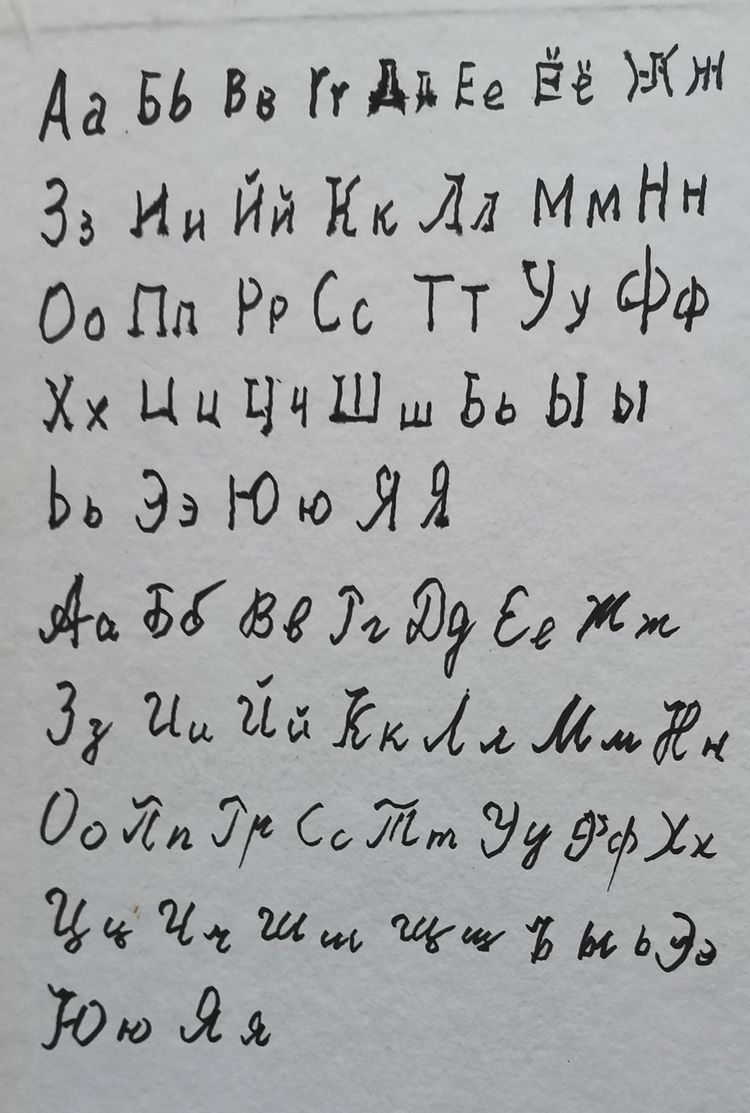 Аа Бb Вв Гг Дд Ее Ёё Жж
Зз Ии Йй Кк Лл Мм Нн
Оо Пп Рр Сс Тт Уу Фф
Хх Цц Цч Шш Бь Ы ы
Ьь Ээ Юю Я Я
Аа Бб Вв Гг Дд Ее Жж
Зз Ии Йй Кк Лл Мм Нн
Оо Пп Рр Сс Тт Уу Фф Хх
Цц Чч Шш Щщ Ъ ы ь Ээ
Юю Яя